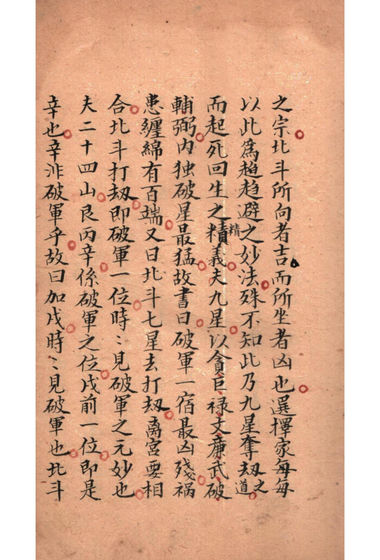 之宗北斗所向者吉而所坐者凶也選擇家每每
以此爲趨避之妙法殊不知此乃九星奪刼之道
而起死回生之精義夫九星以貪巨祿文廉武破
輔弼内独破星最猛故書曰破軍一宿最凶殘禍
患纏綿有百端又曰北斗七星去打刼離宮要相
合北斗打刼即破軍一位時〻見破軍之元妙也
夫二十四山艮丙辛係破軍之位戌前一位即是
辛也辛非破軍乎故曰加戌時〻見破軍也北斗